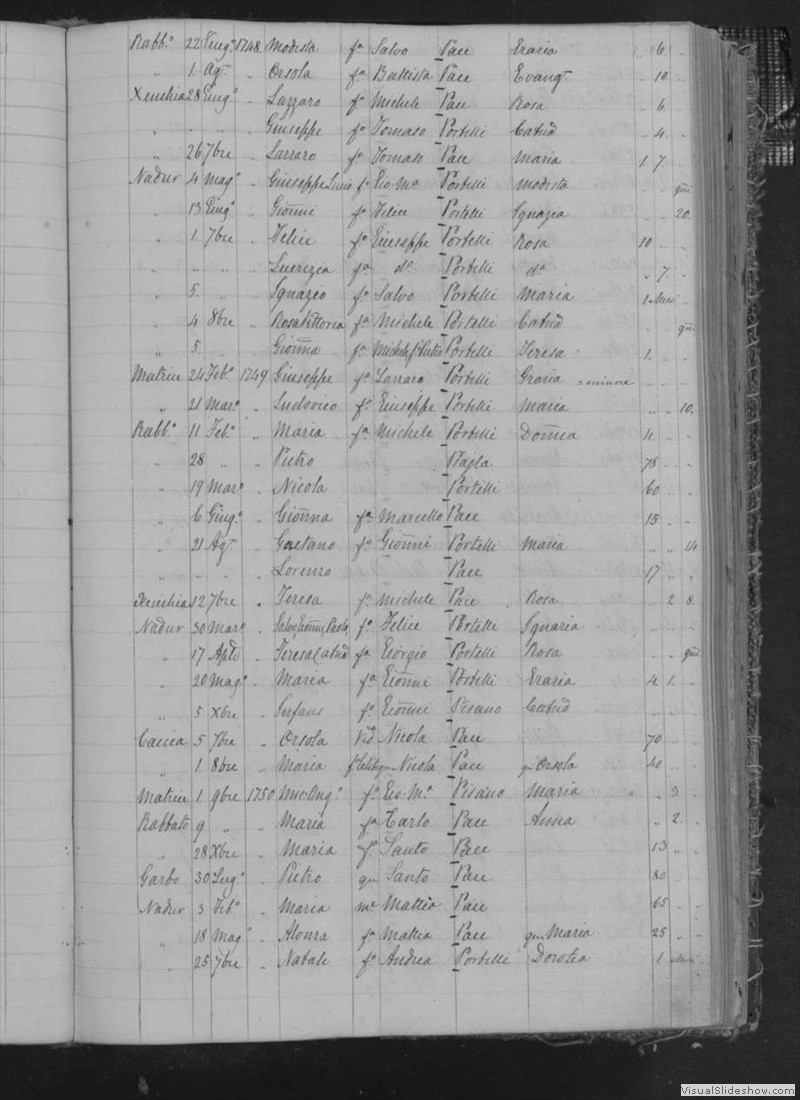 Rabb.º 22 Giug.º 1748 Modesta fª Salvo Pace Grazia " 6 "
" 1 Ag.t " Orsola fª Battista Pace Evang.t " 10 "
Xeuchia 28 Giug.º " Lazzaro fº Michele Pace Rosa " 6
" " " " Giuseppe fº Tomaso Portelli Catnā " 4 "
" 26 7bre " Lazzaro fº Tomaso Pace Maria 1 7 "
Nadur 4 Mag.º " Giuseppe fº Gio. Mª Portelli Modesta
" 13 Giug.º " Gioñni fº Felice Portelli Ignazia " " 20
" 1 7bre " Felice fº Giuseppe Portelli Rosa 10 " "
" " " " Lucrezia fª dº Portelli dª " 7 "
" 5 " " Ignazio fº Salvo Portelli Maria 1
" 4 8bre " Rosa Vittoria fª Michele Portelli Catnā
" 5 " " Gioñna fª Michele fº Pietro Portelli Teresa 1 " "
Matrice 24 Feb.º 1749 Giuseppe fº Lazzaro Portelli Grazia
" 21 Mar.º " Ludovico fº Giuseppe Portelli Maria " " 10
Rabb.º 11 Feb.º " Maria fª Michele Portelli Domca 4 " "
" 28 " " Pietro 78 " "
" 19 Mar.º " Nicola Portelli 60 " "
" 6 Giug.º " Gioñna fª Marcello Pace 15 " "
" 21 Ag.t " Gaetano fº Gioñni Portelli Maria " " 14
" " " " Lorenzo Pace 17 " "
Xeuchia 12 7bre " Teresa fª Michele Pace Rosa " 2 8
Nadur 30 Mar.º " Salvo Gioñni Paolo fº Felice Portelli Ignazia
" 17 Aple " Teresa Catnā fª Giorgio Portelli Rosa
" 20 Mag.º " Maria fª Gioñni Portelli Grazia 4 1 "
" 5 Xbre " Infans fº Gioñni Pisano Catnā
Caccia 5 7bre " Orsola Vid Nicola Pace 70 " "
" 1 8bre " Maria Nicola Pace qm Orsola 40 " "
Matrice 1 9bre 1750 Mic. Ang.º fº Gio. Mª Pisano Maria " 3 "
Rabbato 9 " " Maria fª Carlo Pace Anna " 2 "
" 28 Xbre " Maria fª Santo Pace 13 " "
Garbo 30 Lug.º " Pietro qm Santo Pace 80 " "
Nadur 3 Feb.º " Maria me Mattia Pace 65 " "
" 18 Mag.º " Alonza fª Mattia Pace qm Maria 25 " "
" 25 7bre " Natale fº Andrea Portelli Dorotea 1
VisualSlideshow.com